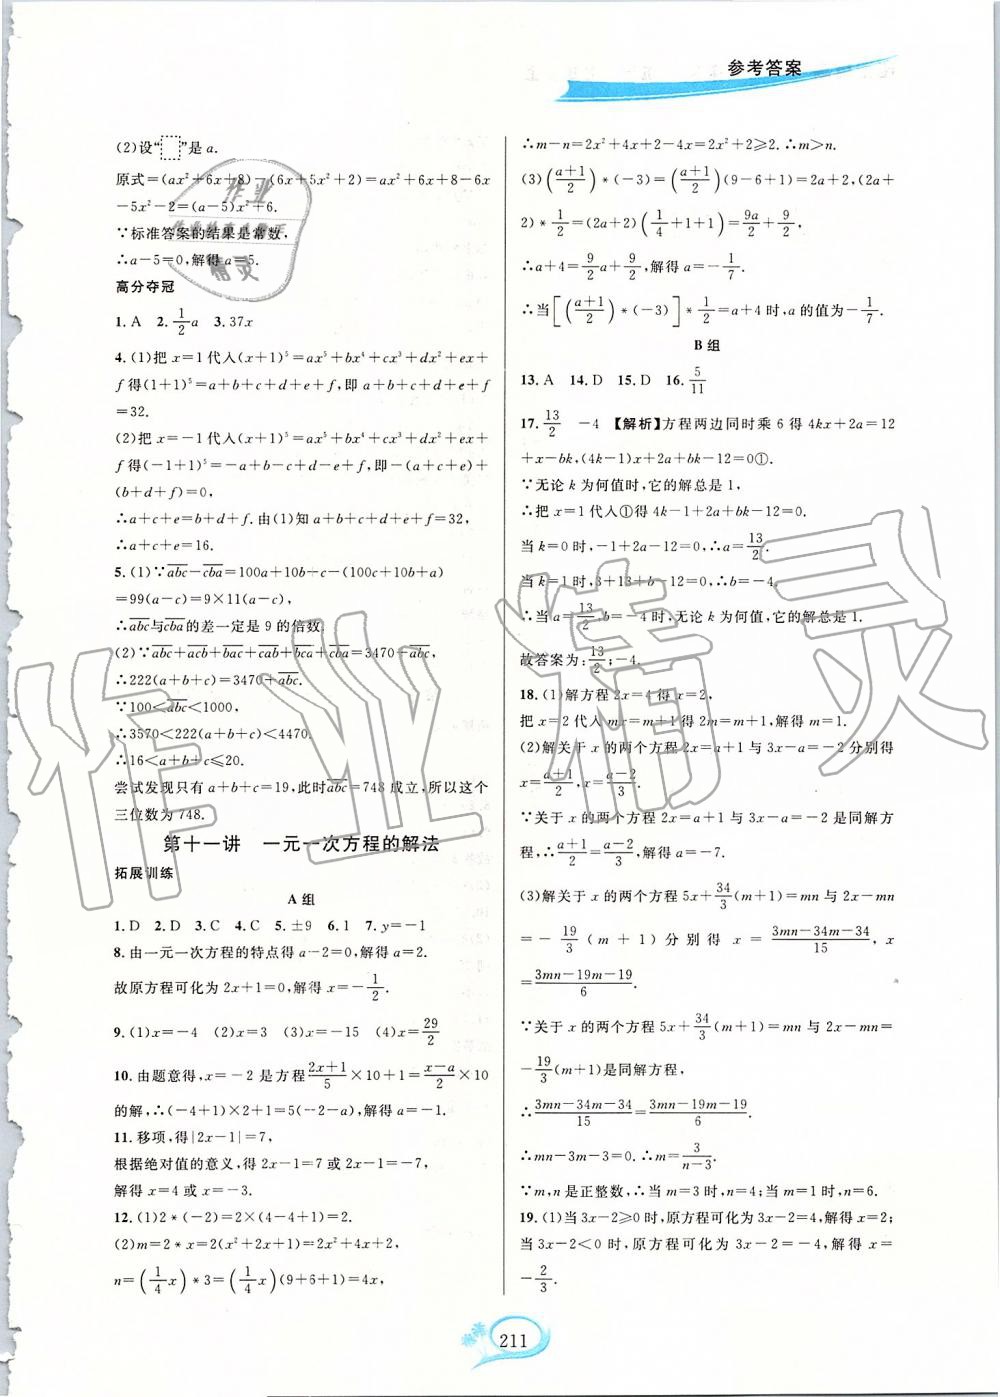 参考答案
(2)设“□”是a.
原式=(ax²+6x+8)-(6x+5x²+2)=ax²+6x+8-6x
-5x²-2=(a-5)x²+6.
∵标准答案的结果是常数,
∴a-5=0,解得a=5.
高分夺冠
1. A 2. 1/2 a 3. 37x
4. (1)把x=1代入(x+1)⁵=ax⁵+bx⁴+cx³+dx²+ex+
f得(1+1)⁵=a+b+c+d+e+f,即a+b+c+d+e+f
=32.
(2)把x=-1代入(x+1)⁵=ax⁵+bx⁴+cx³+dx²+ex+
f得(-1+1)⁵=-a+b-c+d-e+f,即-(a+c+e)+
(b+d+f)=0,
∴a+c+e=b+d+f.由(1)知a+b+c+d+e+f=32,
∴a+c+e=16.
5. (1)∵abc-cba=100a+10b+c-(100c+10b+a)
=99(a-c)=9×11(a-c).
∴abc与cba的差一定是9的倍数.
(2)∵abc+acb+bac+cab+bca+cba=3470+abc,
∴222(a+b+c)=3470+abc.
∵100<abc<1000,
∴3570<222(a+b+c)<4470.
∴16<a+b+c≤20.
尝试发现只有a+b+c=19,此时abc=748成立,所以这个
三位数为748.
第十一讲 一元一次方程的解法
拓展训练
A组
1. D 2. D 3. C 4. C 5. ±9 6. 1 7. y=-1
8. 由一元一次方程的特点得a-2=0,解得a=2.
故原方程可化为2x+1=0,解得x=-1/2.
9. (1)x=-4 (2)x=3 (3)x=-15 (4)x=29/2
10. 由题意得,x=-2是方程(2x+1)/5×10+1=(x-a)/2×10
的解,∴(-4+1)×2+1=5(-2-a),解得a=-1.
11. 移项,得|2x-1|=7,
根据绝对值的意义,得2x-1=7或2x-1=-7,
解得x=4或x=-3.
12. (1)2*(-2)=2×(4-4+1)=2.
(2)m=2*x=2(x²+2x+1)=2x²+4x+2,
n=(1/4 x)*3=(1/4 x)(9+6+1)=4x,
∴m-n=2x²+4x+2-4x=2x²+2≥2.∴m>n.
(3)((a+1)/2)*(-3)=((a+1)/2)(9-6+1)=2a+2,(2a+
2)*1/2=(2a+2)(1/4+1+1)=9a/2+9/2,
∴a+4=9/2 a+9/2,解得a=-1/7.
∴当[((a+1)/2)*(-3)]*1/2=a+4时,a的值为-1/7.
B组
13. A 14. D 15. D 16. 5/11
17. 13/2 -4 【解析】方程两边同时乘6得4kx+2a=12
+x-bk,(4k-1)x+2a+bk-12=0①.
∵无论k为何值时,它的解总是1,
∴把x=1代入①得4k-1+2a+bk-12=0.
当k=0时,-1+2a-12=0,∴a=13/2.
当k=1时,3+13+b-12=0,∴b=-4.
∴当a=13/2,b=-4时,无论k为何值,它的解总是1.
故答案为:13/2;-4.
18. (1)解方程2x=4得x=2,
把x=2代入mx=m+1得2m=m+1,解得m=1.
(2)解关于x的两个方程2x=a+1与3x-a=-2分别得
x=(a+1)/2,x=(a-2)/3.
∵关于x的两个方程2x=a+1与3x-a=-2是同解方
程,∴(a+1)/2=(a-2)/3.解得a=-7.
(3)解关于x的两个方程5x+34/3(m+1)=mn与2x-mn
=-19/3(m+1)分别得x=(3mn-34m-34)/15,x
=(3mn-19m-19)/6.
∵关于x的两个方程5x+34/3(m+1)=mn与2x-mn=
-19/3(m+1)是同解方程,
∴(3mn-34m-34)/15=(3mn-19m-19)/6.
∴mn-3m-3=0.∴m=3/(n-3).
∵m,n是正整数,∴当m=3时,n=4;当m=1时,n=6.
19. (1)当3x-2≥0时,原方程可化为3x-2=4,解得x=2;
当3x-2<0时,原方程可化为3x-2=-4,解得x=
-2/3.
211
作业精灵